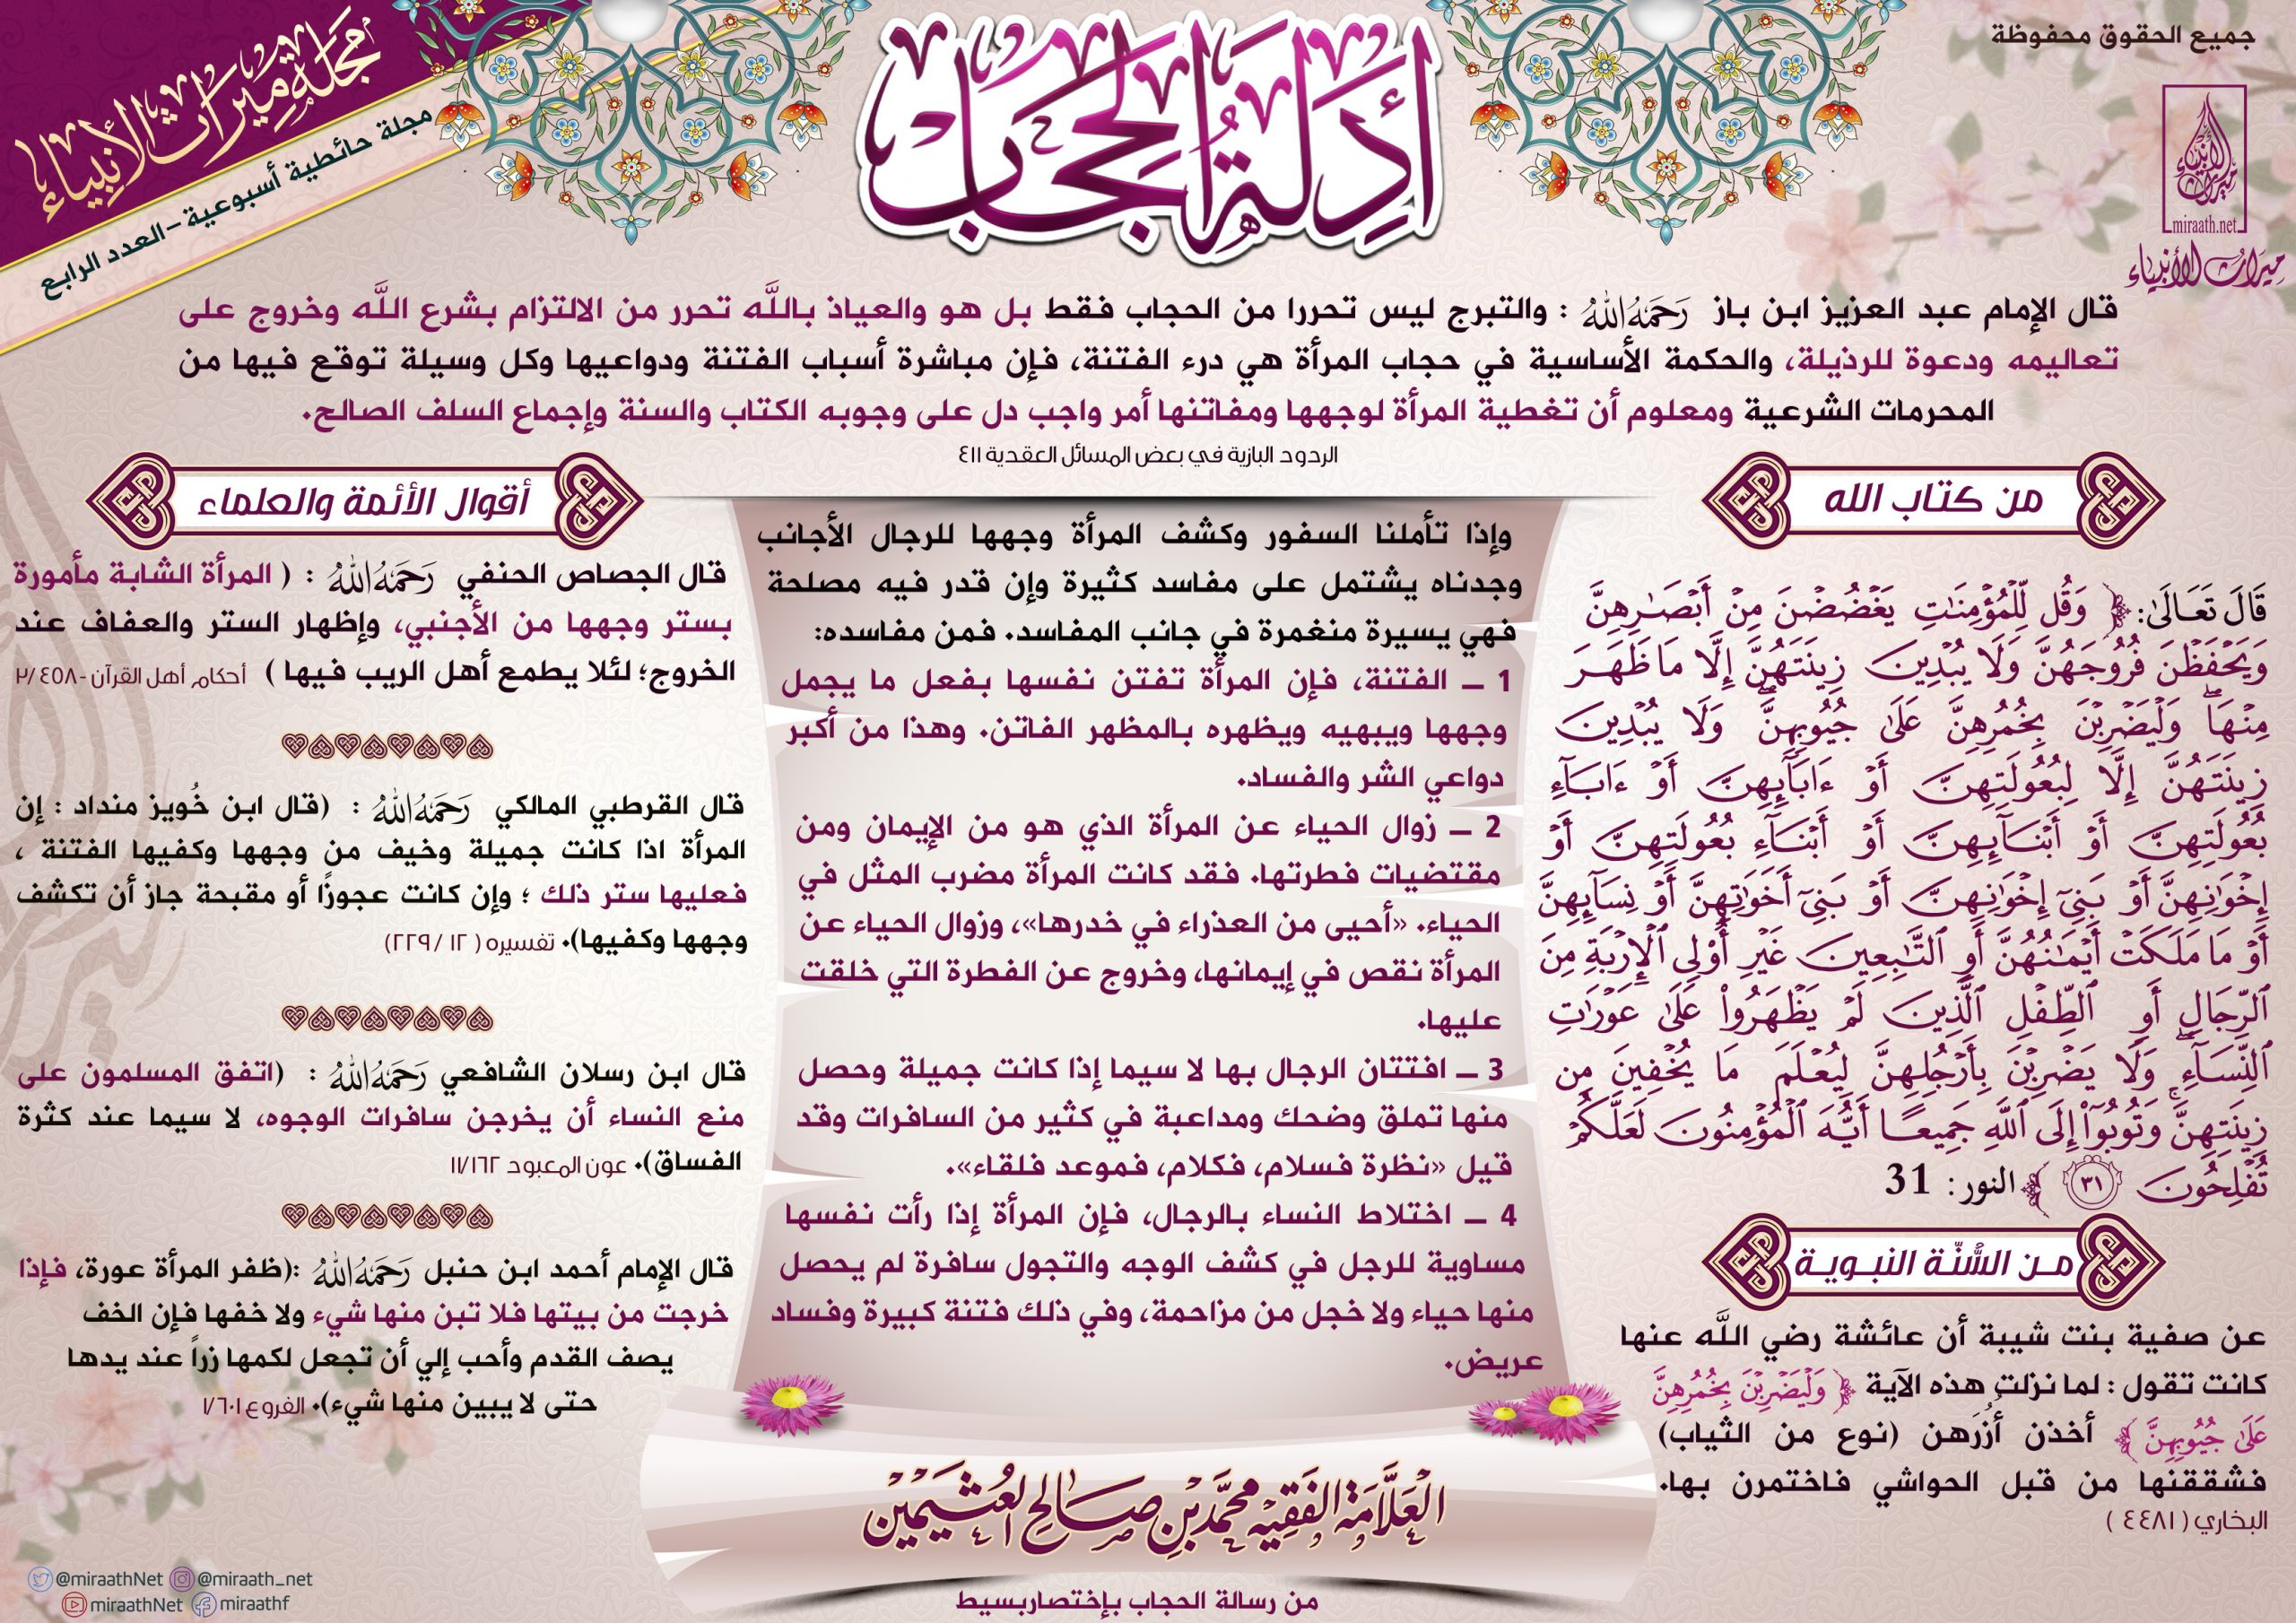 جميع الحقوق محفوظة
ميراث الأنبياء
miraath.net
ميراث الأنبياء
مجلة ميراث الأنبياء
مجلة حائطية أسبوعية - العدد الرابع
أدلة الحجاب
قال الإمام عبد العزيز ابن باز رَحِمَهُ اللهُ : والتبرج ليس تحررا من الحجاب فقط بل هو والعياذ باللَّه تحرر من الالتزام بشرع اللَّه وخروج على
تعاليمه ودعوة للرذيلة، والحكمة الأساسية في حجاب المرأة هي درء الفتنة، فإن مباشرة أسباب الفتنة ودواعيها وكل وسيلة توقع فيها من
المحرمات الشرعية ومعلوم أن تغطية المرأة لوجهها ومفاتنها أمر واجب دل على وجوبه الكتاب والسنة وإجماع السلف الصالح.
الردود البازية في بعض المسائل العقدية ٤١١
من كتاب الله
قَالَ تَعَالَىٰ: ﴿ وَقُل لِّلْمُؤْمِنَٰتِ يَغْضُضْنَ مِنْ أَبْصَٰرِهِنَّ
وَيَحْفَظْنَ فُرُوجَهُنَّ وَلَا يُبْدِينَ زِينَتَهُنَّ إِلَّا مَا ظَهَرَ
مِنْهَا ۖ وَلْيَضْرِبْنَ بِخُمُرِهِنَّ عَلَىٰ جُيُوبِهِنَّ ۖ وَلَا يُبْدِينَ
زِينَتَهُنَّ إِلَّا لِبُعُولَتِهِنَّ أَوْ ءَابَآئِهِنَّ أَوْ ءَابَآءِ
بُعُولَتِهِنَّ أَوْ أَبْنَآئِهِنَّ أَوْ أَبْنَآءِ بُعُولَتِهِنَّ أَوْ
إِخْوَٰنِهِنَّ أَوْ بَنِىٓ إِخْوَٰنِهِنَّ أَوْ بَنِىٓ أَخَوَٰتِهِنَّ أَوْ نِسَآئِهِنَّ
أَوْ مَا مَلَكَتْ أَيْمَٰنُهُنَّ أَوِ ٱلتَّٰبِعِينَ غَيْرِ أُو۟لِى ٱلْإِرْبَةِ مِنَ
ٱلرِّجَالِ أَوِ ٱلطِّفْلِ ٱلَّذِينَ لَمْ يَظْهَرُوا۟ عَلَىٰ عَوْرَٰتِ
ٱلنِّسَآءِ ۖ وَلَا يَضْرِبْنَ بِأَرْجُلِهِنَّ لِيُعْلَمَ مَا يُخْفِينَ مِن
زِينَتِهِنَّ ۚ وَتُوبُوٓا۟ إِلَى ٱللَّهِ جَمِيعًا أَيُّهَ ٱلْمُؤْمِنُونَ لَعَلَّكُمْ
تُفْلِحُونَ ٣١ ﴾ النور: 31
من السُّنّة النبوية
عن صفية بنت شيبة أن عائشة رضي اللَّه عنها
كانت تقول : لما نزلت هذه الآية ﴿ وَلْيَضْرِبْنَ بِخُمُرِهِنَّ
عَلَىٰ جُيُوبِهِنَّ ﴾ أخذن أُزُرَهن (نوع من الثياب)
فشققنها من قبل الحواشي فاختمرن بها.
البخاري ( ٤٤٨١ )
وإذا تأملنا السفور وكشف المرأة وجهها للرجال الأجانب
وجدناه يشتمل على مفاسد كثيرة وإن قدر فيه مصلحة
فهي يسيرة منغمرة في جانب المفاسد. فمن مفاسده:
1 ـ الفتنة، فإن المرأة تفتن نفسها بفعل ما يجمل
وجهها ويبهيه ويظهره بالمظهر الفاتن. وهذا من أكبر
دواعي الشر والفساد.
2 ـ زوال الحياء عن المرأة الذي هو من الإيمان ومن
مقتضيات فطرتها. فقد كانت المرأة مضرب المثل في
الحياء. «أحيى من العذراء في خدرها»، وزوال الحياء عن
المرأة نقص في إيمانها، وخروج عن الفطرة التي خلقت
عليها.
3 ـ افتتان الرجال بها لا سيما إذا كانت جميلة وحصل
منها تملق وضحك ومداعبة في كثير من السافرات وقد
قيل «نظرة فسلام، فكلام، فموعد فلقاء».
4 ـ اختلاط النساء بالرجال، فإن المرأة إذا رأت نفسها
مساوية للرجل في كشف الوجه والتجول سافرة لم يحصل
منها حياء ولا خجل من مزاحمة، وفي ذلك فتنة كبيرة وفساد
عريض.
العَلَّامَة الفَقِيه مُحَمَّد بن صَالِح العُثَيمِين
من رسالة الحجاب بإختصاربسيط
أقوال الأئمة والعلماء
قال الجصاص الحنفي رَحِمَهُ اللهُ : ( المرأة الشابة مأمورة
بستر وجهها من الأجنبي، وإظهار الستر والعفاف عند
الخروج؛ لئلا يطمع أهل الريب فيها ) أحكام أهل القرآن - ٣/٤٥٨
قال القرطبي المالكي رَحِمَهُ اللهُ : (قال ابن خُويز منداد : إن
المرأة اذا كانت جميلة وخيف من وجهها وكفيها الفتنة ،
فعليها ستر ذلك ؛ وإن كانت عجوزًا أو مقبحة جاز أن تكشف
وجهها وكفيها). تفسيره ( ١٢ /٢٢٩)
قال ابن رسلان الشافعي رَحِمَهُ اللهُ : (اتفق المسلمون على
منع النساء أن يخرجن سافرات الوجوه، لا سيما عند كثرة
الفساق). عون المعبود ١١/١٦٢
قال الإمام أحمد ابن حنبل رَحِمَهُ اللهُ :(ظفر المرأة عورة، فإذا
خرجت من بيتها فلا تبن منها شيء ولا خفها فإن الخف
يصف القدم وأحب إلي أن تجعل لكمها زراً عند يدها
حتى لا يبين منها شيء). الفروع ١/٦٠١
@miraathNet @miraath_net
miraathNet miraathf